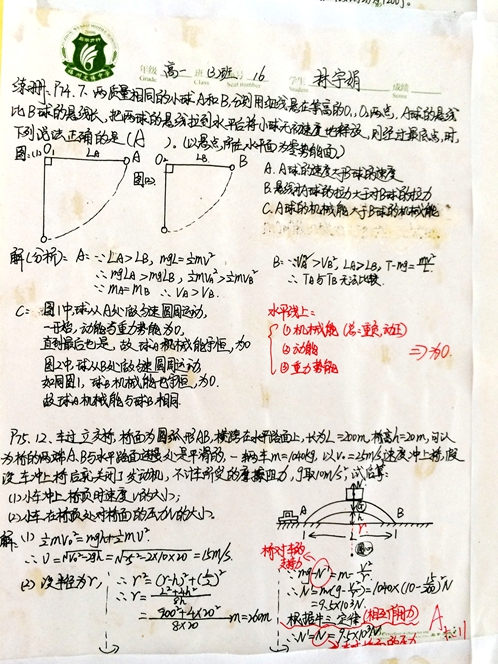 年级 高一 班 B班 号 16 学生 林宇娟 成绩
Grade Class Seat number Score
练册、P14. 7. 两质量相同的小球A和B,分别用细线悬在等高的O₁、O₂两点, A球的悬线
比B球的悬线长, 把两球的悬线拉到水平后将小球无初速度地释放, 则经过最低点时,
下列说法正确的是 (A ). (以悬点所在水平面为零势能面)
图(1) O₁ LA A 图(2) O₂ LB B
A. A球的速度大于B球的速度
B. 悬线对A球的拉力大于对B球的拉力
C. A球的机械能大于B球的机械能
解(分析): A: ∵LA>LB, mgL=½mv²
∴mgLA>mgLB, ½mvA²>½mvB²
∵mA=mB ∴VA>VB.
B: ∵VA²>VB², LA>LB, T-mg=mv²/L
∴TA与TB无法比较.
C: 图1中球从A处做匀速圆周运动,
一开始, 动能与重力势能为0,
直到最后也是, 故球A机械能守恒, 为0
图2中球从B处做匀速圆周运动
如同图1, 球B机械能也守恒, 为0.
故球A机械能与球B相同.
水平线上:
① 机械能 (总=重+动)
② 动能
③ 重力势能
⇒为0.
P15. 12. 车过立交桥, 桥面为圆弧形AB, 横跨在水平路面上, 长为L=200m, 桥高h=20m, 可以
认为桥的两端A、B与水平路面连接处是平滑的, 一辆车m=1040kg, 以v₀=25m/s速度冲上桥, 假
设车冲上桥后就关闭了发动机, 不计所受的摩擦阻力, g取10m/s², 试后算:
(1)小车冲上桥顶时速度v的大小;
(2)小车在桥顶处对桥面的压力N的大小.
A h B
L
r
解: (1) ½mv₀²=mgh+½mv².
∴v=√v₀²-2gh=√25²-2×10×20=15m/s.
(2) 设半径为r,
∴r²=(r-h)²+(L/2)²
∴r=L²+4h²/8h
=200²+4×20²/8×20 m=260m
桥对车的支持力
∴mg-N'=m·v²/r
∴N'=m(g-v²/r)=1040×(10-15²/260)N
=9.5×10³N
根据牛三定律 (相互作用力)
∴N=N'=9.5×10³N
A